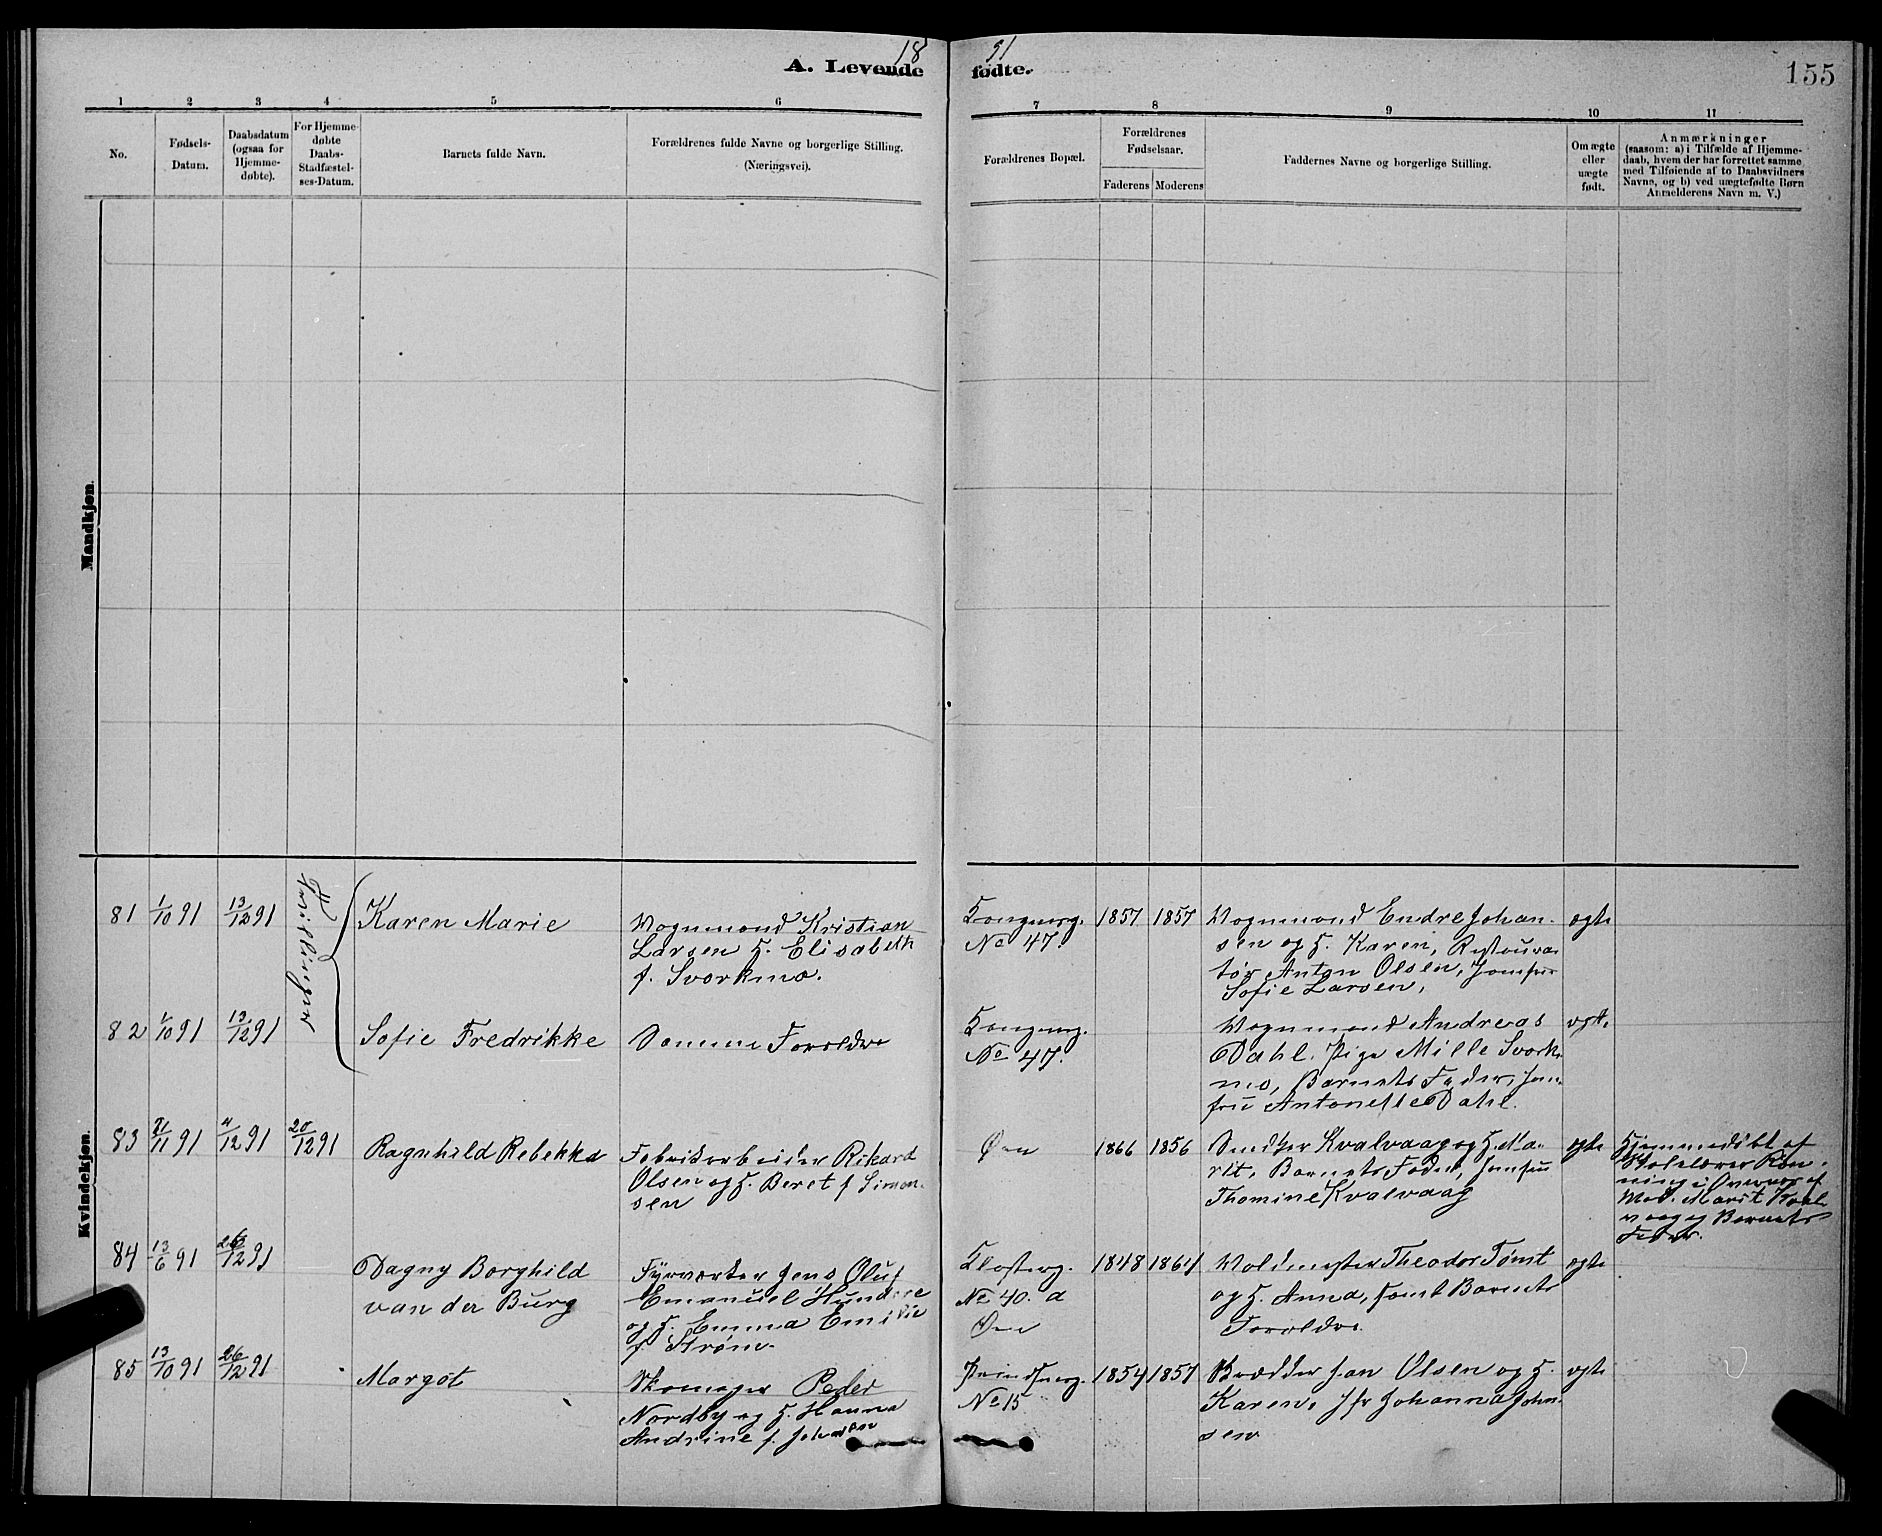 18 91
A. Levende fødte.
155
1 2 3 4 5 6 7 8 9 10 11
No.
Fødsels-
Datum.
Daabsdatum
(ogsaa for
Hjemme-
døbte).
For Hjemme-
døbte
Daabs-
Stadfæstel-
ses-Datum.
Barnets fulde Navn.
Forældrenes fulde Navne og borgerlige Stilling.
(Næringsvei).
Forældrenes Bopæl.
Forældrenes
Fødselsaar.
Faderens Moderens
Faddernes Navne og borgerlige Stilling.
Om ægte
eller
uægte
født.
Anmærkninger
(saasom: a) i Tilfælde af Hjemme-
daab, hvem der har forrettet samme
med Tilføiende af to Daabsvidners
Navne, og b) ved uægtefødte Børn
Anmelderens Navn m. V.)
Mandkjøn.
Kvindekjøn.
81
1/10 91
13/12 91
Tvillinger
Karen Marie
Vognmand Kristian
Larsen & H. Elisabeth
f. Svorkmo.
Kongensg.
No 47.
1857
1857
Vognmand Endre Johan-
sen og H. Karen, Restaura-
tør Anton Olsen, Jomfru
Sofie Larsen,
ægte
82
1/10 91
13/12 91
Sofie Fredrikke
Samme Forældre
Kongensg.
No 47.
Vognmand Andreas
Dahl. Pige Mille Svork-
mo, Barnets Fader, Jom-
fru Antonette Dahl.
ægte
83
11 91
4/12 91
20/12 91
Ragnhild Rebekka
Fabrikarbeider Rikard
Olsen og H. Beret f. Simon-
sen
Øen
1866
1856
Snedker Kvalvaag og H. Ma-
rit, Barnets Fader, Jomfru
Thomine Kvalvaag
ægte
Hjemmedøbt af
Skolelærer Røn-
ning i Overvær af
Mad. Marit Kval-
vaag og Barnets
Fader.
84
13/6 91
26/12 91
Dagny Borghild
van der Burg
Fyrværker Jens Oluf
Emanuel Hundere
og H. Emma Emilie
f. Strøm.
Klosterg.
No 40. a
Øen
1848
1864
Theodor Tømt
og H. Anna, samt Barnets
Forældre.
ægte
85
13/10 91
26/12 91
Margot
Skomager Peder
Nordby og H. Hanna
Andrine f. Johnsen
Prindsensg.
No 15
1854
1857
Jon Olsen og H.
Karen, Jfr Johanna John-
sen
ægte